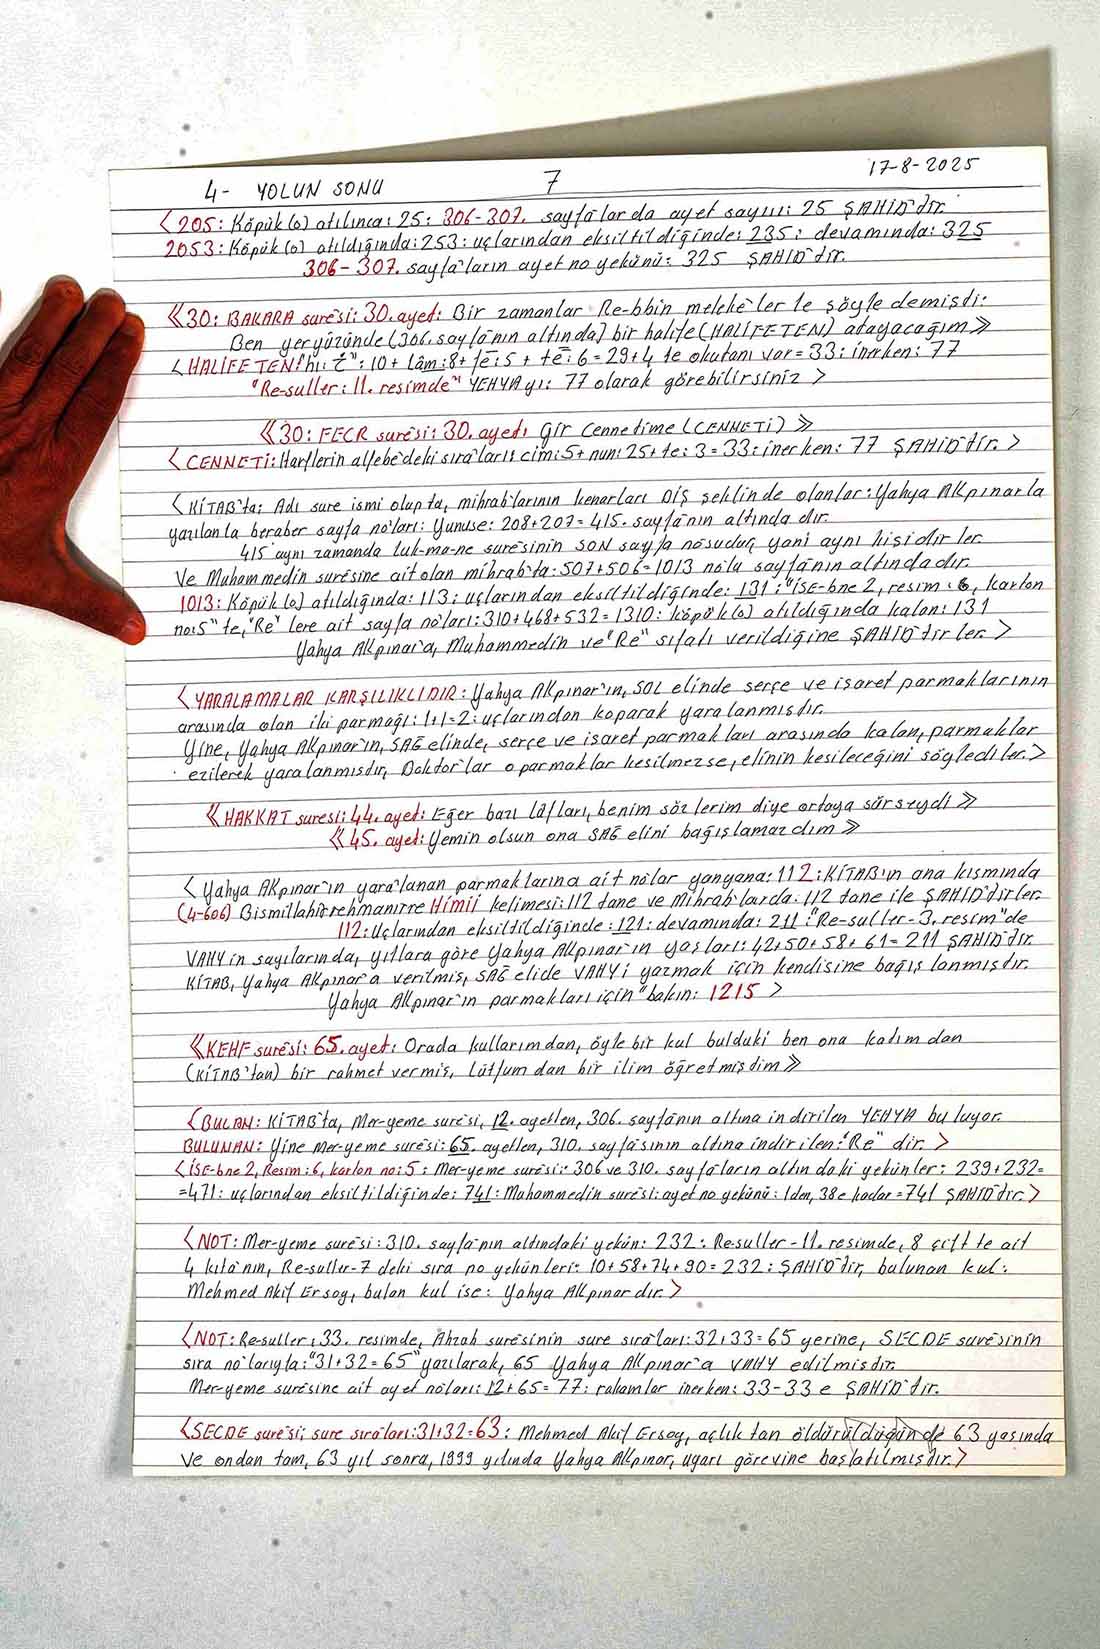 4- YOLUN SONU 7 17-8-2025
<205: Köpük(o) atılınca: 25: 306-307. sayfalarda ayet sayısı: 25 ŞAHİD'dir.
2053: Köpük(o) atıldığında: 253: uçlarından eksiltildiğinde: 235: devamında: 325
306-307. sayfa'ların ayet no yekünü: 325 ŞAHİD'dir.
《30: BAKARA suresi: 30. ayet: Bir zamanlar Re-bbin meleke'ler le şöyle demişdi:
Ben yeryüzünde (306. sayfa'nın altında) bir halife (HALİFETEN) atayacağım》
<HALİFETEN: hı: "خ": 10+ lâm: 8+ fe: 5 + te: 6 = 29+4 te okutanı var = 33: inerken: 77
"Re-suller: 11. resimde" YEHYA yı: 77 olarak görebilirsiniz >
《30: FECR suresi: 30. ayet: Gir Cennetime (CENNETİ) 》
<CENNETİ: Harflerin alfebe'deki sıra'ları: cim: 5+ nun: 25+ te: 3 = 33: inerken: 77 ŞAHİD'dir. >
<KİTAB'ta: Adı sure ismi olupta, mihrab'larının kenarları DİŞ şeklinde olanlar: Yahya Akpınarla
yazılanla beraber sayfa no'ları: Yunuse: 208+207= 415. sayfa'nın altında dır.
415 aynı zamanda luk-ma-ne suresinin SON sayfa nosudur, yani aynı kişidir ler
Ve Muhammedin suresine ait olan mihrab'ta: 507+506=1013 nolu sayfa'nın altında dır.
1013: Köpük(o) atıldığında: 113: uçlarından eksiltildiğinde: 131: "İSE-bne 2, resim: 6, karton
no: 5" te, "Re" lere ait sayfa no'ları: 310+468+532=1310: köpük(o) atıldığında kalan: 131
Yahya Akpınar'a, Muhammedin ve "Re" sıfatı verildiğine ŞAHİD'dir ler. >
<YARALAMALAR KARŞILIKLIDIR: Yahya Akpınar'ın, SOL elinde serçe ve işaret parmaklarının
arasında olan iki parmağı: 1+1=2: uçlarından koparak yaralanmışdır.
Yine, Yahya Akpınar'ın, SAĞ elinde, serçe ve işaret parmakları arasında kalan, parmaklar
ezilerek yaralanmışdır, Doktor'lar o parmaklar kesilmezse, elinin kesileceğini söylediler. >
《HAKKAT suresi: 44. ayet: Eğer bazı lâfları, benim sözlerim diye ortaya sürseydi 》
《45. ayet: Yemin olsun ona SAĞ elini bağışlamazdım 》
<Yahya Akpınar'ın yara'lanan parmaklarına ait no'lar yanyana: 112: KİTAB'ın ana kısmında
(4-606) Bismillahirrehmanırre Himii kelimesi: 112 tane ve Mihrab'larda: 112 tane ile ŞAHİD'dirler.
112: Uçlarından eksiltildiğinde: 121: devamında: 211: "Re-suller-3. resim" de
VAHY in sayılarında, yıllara göre Yahya Akpınar'ın yaşları: 42+50+58+61= 211 ŞAHİD'dir.
KİTAB, Yahya Akpınar'a verilmiş, SAĞ elide VAHY'i yazmak için kendisine bağışlanmışdır.
Yahya Akpınar'ın parmakları için "bakın: 1215 >
《KEHF suresi: 65. ayet: Orada kullarımdan, öyle bir kul bulduki ben ona katımdan
(KİTAB'tan) bir rahmet vermiş, Lütfumdan bir ilim öğretmişdim 》
<BULAN: KİTAB'ta, Mer-yeme suresi, 12. ayetten, 306. sayfa'nın altına indirilen YEHYA buluyor.
BULUNAN: Yine Mer-yeme suresi: 65. ayetten, 310. sayfasının altına indirilen: "Re" dir. >
<İSE-bne 2, Resim: 6, karton no: 5: Mer-yeme suresi: 306 ve 310. sayfa'ların altındaki yekünler: 239+232=
=471: uçlarından eksiltildiğinde: 741: Muhammedin suresi: ayet no yekünü: 1 den, 38 e kadar=741 ŞAHİD'dır. >
<NOT: Mer-yeme suresi: 310. sayfa'nın altındaki yekün: 232: Re-suller-11. resimde, 8 çift te ait
4 kıta'nın, Re-suller-7 deki sıra no yekünleri: 10+58+74+90=232: ŞAHİD'dir, bulunan kul:
Mehmed Akif Ersoy, bulan kul ise: Yahya Akpınar dır. >
<NOT: Re-suller: 33. resimde, Ahzab suresinin sure sıra'ları: 32+33=65 yerine, SECDE suresinin
sıra no'larıyla: "31+32=65" yazılarak, 65 Yahya Akpınar'a VAHY edilmişdir.
Mer-yeme suresine ait ayet no'ları: 12+65=77: rakamlar inerken: 33-33 e ŞAHİD'dir.
<SECDE suresi: sure sıra'ları: 31+32=63: Mehmed Akif Ersoy, açlık tan öldürüldüğünde 63 yaşında
ve ondan tam, 63 yıl sonra, 1999 yılında Yahya Akpınar, uyarı görevine başlatılmışdır. >